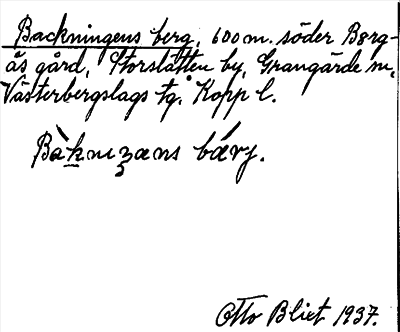 Backningens berg, 600 m. söder Berg-
ås gård, Storslätten by, Grangärde sn,
Västerbergslags tg. Kopp l.
Bàknizans bárj.
Otto Blixt 1937.